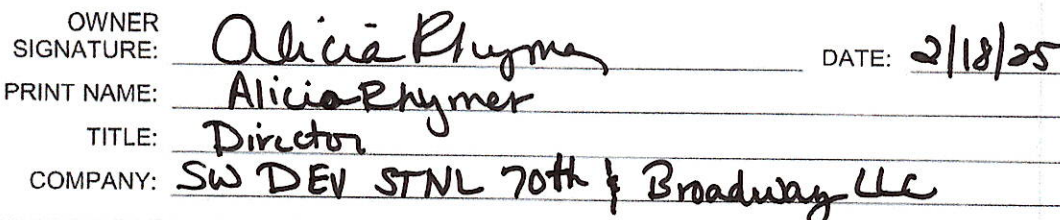 OWNER
SIGNATURE: Alicia Rhymer DATE: 2/18/25
PRINT NAME: Alicia Rhymer
TITLE: Director
COMPANY: SW DEV STNL 70th & Broadway LLC